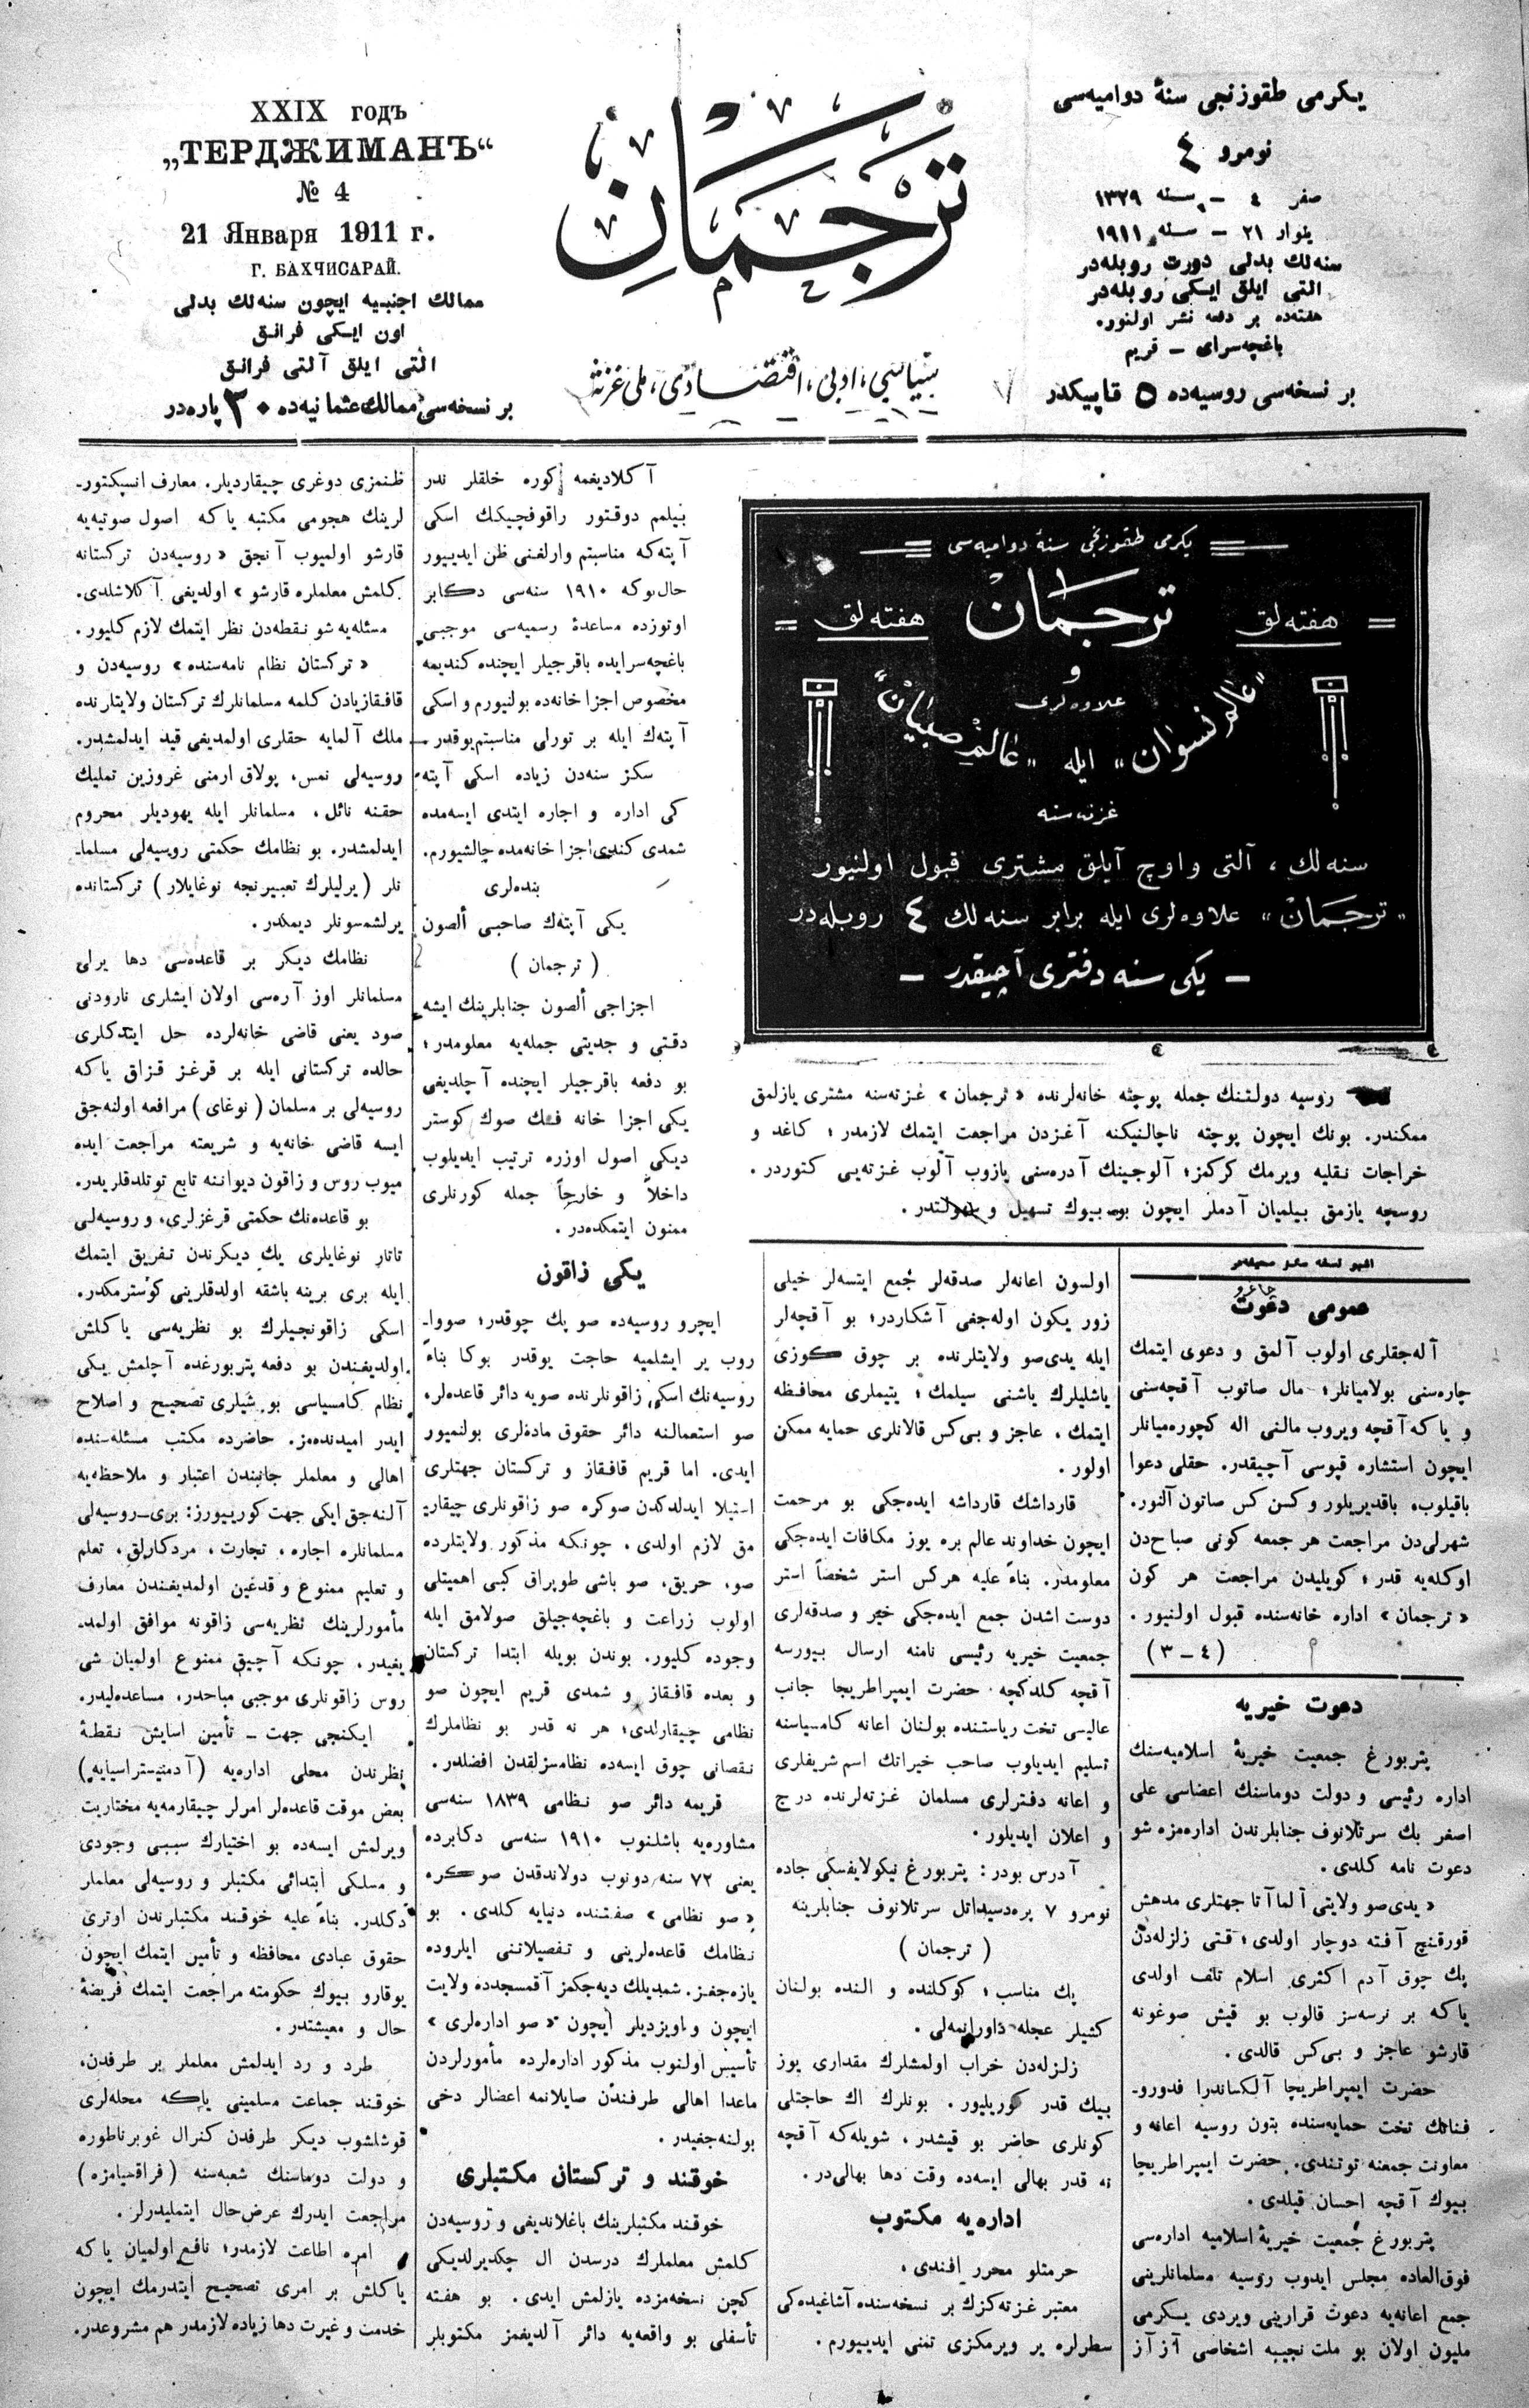 XXIX годъ
„ТЕРДЖИМАНЪ“
№ 4
21 Января 1911 г.
Г. БАХЧИСАРАЙ.
ممالك اجنبیه ایچون سنه‌لك بدلی
اون ایكی فرانق
التی ایلق آلتی فرانق
بر نسخه‌سی ممالك عثمانیه‌ده ٣٠ پاره‌در
ترجمان
سیاسی، ادبی، اقتصادی، ملی غزته
یكرمی طقوزنجی سنهٔ دوامیه‌سی
نومرو ٤
صفر ٤ – سنه ١٣٢٩
ینوار ٢١ – سنه ١٩١١
سنه‌لك بدلی دورت روبله‌در
التی ایلق ایكی روبله‌در
هفته‌ده بر دفعه نشر اولنور.
باغچه‌سرای – قریم
بر نسخه‌سی روسیه‌ده ٥ قاپیكدر
یكرمی طقوزنجی سنهٔ دوامیه‌سی
هفته‌لق ترجمان هفته‌لق
و
علاوه‌لری
„عالم نسوان“ ایله „عالم صبیان“
غزته‌سنه
سنه‌لك، آلتی و اوچ آیلق مشتری قبول اولنیور
„ترجمان“ علاوه‌لری ایله برابر سنه‌لك ٤ روبله‌در
– یكی سنه دفتری آچیقدر –
روسیه دولتنك جمله پوچته خانه‌لرنده «ترجمان» غزته‌سنه مشتری یازلمق
ممكندر. بونك ایچون پوچته ناچالنیكنه آغزدن مراجعت ایتمك لازمدر؛ كاغد و
خراجات نقلیه ویرمك كركمز؛ آلوجینك آدره‌سنی یازوب آلوب غزته‌یی كتوردر.
روسچه یازمق بیلمیان آدملر ایچون بو بیوك تسهیل و سهولتدر.
اشبو نسخه سكز صحیفه‌در
عمومی دعوت
آله‌جقلری اولوب آلمق و دعوی ایتمك
چاره‌سنی بولامیانلر؛ مال صاتوب آقچه‌سنی
و یا كه آقچه ویروب مالنی اله كچوره‌میانلر
ایچون استشاره قپوسی آچیقدر. حقلی دعوا
باقیلوب، باقدیریلور و كسن كس صاتون آلنور.
شهرلی‌دن مراجعت هر جمعه كونی صباح‌دن
اوكله‌یه قدر؛ كویلیدن مراجعت هر كون
«ترجمان» اداره خانه‌سنده قبول اولنیور.
(٤ – ٣)
دعوت خیریه
پتربورغ جمعیت خیریهٔ اسلامیه‌سنك
اداره رئیسی و دولت دوماسنك اعضاسی علی
اصغر بك سرتلانوف جنابلرندن اداره‌مزه شو
دعوت نامه كلدی.
«یدی‌صو ولایتی آلما آتا جهتلری مدهش
قورقنچ آفته دوچار اولدی؛ قتی زلزله‌دن
پك چوق آدم اكثری اسلام تلف اولدی
یا كه بر نرسه‌سز قالوب بو قیش صوغونه
قارشو عاجز و بی‌كس قالدی.
حضرت ایمپراطریچا آلكساندرا فدورو-
فنانك تحت حمایه‌سنده بتون روسیه اعانه و
معاونت جمعنه توتندی. حضرت ایمپراطریچا
بیوك آقچه احسان قیلدی.
پتربورغ جمعیت خیریهٔ اسلامیه اداره‌سی
فوق‌العاده مجلس ایدوب روسیه مسلمانلرینی
جمع اعانه‌یه دعوت قرارینی ویردی یكرمی
ملیون اولان بو ملت نجیبه اشخاصی آز آز
اولسون اعانه‌لر صدقه‌لر جمع ایتسه‌لر خیلی
زور یكون اوله‌جغی آشكاردر؛ بو آقچه‌لر
ایله یدی‌صو ولایتلرنده بر چوق كوزی
یاشلیلرك یاشنی سیلمك؛ یتیملری محافظه
ایتمك، عاجز و بی‌كس قالانلری حمایه ممكن
اولور.
قارداشك قارداشه ایده‌جكی بو مرحمت
ایچون خداوند عالم بره یوز مكافات ایده‌جكی
معلومدر. بناءً علیه هركس استر شخصاً استر
دوست اشدن جمع ایده‌جكی خیر و صدقه‌لری
جمعیت خیریه رئیسی نامنه ارسال بیورسه
آقچه كلدكچه حضرت ایمپراطریچا جانب
عالیسی تحت ریاستنده بولنان اعانه كامسیاسنه
تسلیم ایدیلوب صاحب خیراتك اسم شریفلری
و اعانه دفترلری مسلمان غزته‌لرنده درج
و اعلان ایدیلور.
آدرس بودر: پتربورغ نیكولایفسكی جاده
نومرو ٧ پره‌دسیداتل سرتلانوف جنابلرینه
(ترجمان)
پك مناسب؛ كوكلنده و النده بولنان
كشیلر عجله داورانمه‌لی.
زلزله‌دن خراب اولمشلرك مقداری یوز
بیك قدر كوریلیور. بونلرك اك حاجتلی
كونلری حاضر بو قیشدر، شویله‌كه آقچه
نه قدر بهالی ایسه‌ده وقت دها بهالی‌در.
اداره‌یه مكتوب
حرمتلو محرر افندی،
معتبر غزته‌كزك بر نسخه‌سنده آشاغیده‌كی
سطرلره یر ویرمكزی تمنی ایدییورم.
آكلادیغمه كوره خلقلر ندر
بیلمم دوقتور راقوفچیكك اسكی
آپته‌كه مناسبتم وارلغنی ظن ایدییور
حال‌بوكه ١٩١٠ سنه‌سی دكابر
اوتوزده مساعدهٔ رسمیه‌سی موجبی
باغچه‌سرایده باقرجیلر ایچنده كندیمه
مخصوص اجزا خانه‌ده بولنیورم و اسكی
آپته‌ك ایله بر تورلی مناسبتم یوقدر.
سكز سنه‌دن زیاده اسكی آپته
كی اداره و اجاره ایتدی ایسه‌مده
شمدی كندی اجزا خانه‌مده چالشیورم.
بنده‌لری
یكی آپته‌ك صاحبی ألصون
(ترجمان)
اجزاجی ألصون جنابلرینك ایشه
دقتی و جدیتی جمله‌یه معلومدر؛
بو دفعه باقرجیلر ایچنده آچلدیغی
یكی اجزا خانه فنك صوك كوستر
دیكی اصول اوزره ترتیب ایدیلوب
داخلاً و خارجاً جمله كورنلری
ممنون ایتمكده‌در.
یكی زاقون
ایچرو روسیه‌ده صو پك چوقدر؛ صووا-
روب یر ایشلمیه حاجت یوقدر بوكا بناءً
روسیه‌نك اسكی زاقونلرنده صویه دائر قاعده‌لر،
صو استعمالنه دائر حقوق ماده‌لری بولنمیور
ایدی. اما قریم قافقاز و تركستان جهتلری
استیلا ایدلدكدن صوكره صو زاقونلری چیقار-
مق لازم اولدی. چونكه مذكور ولایتلرده
صو، حریق، صو باشی طوپراق كبی اهمیتلی
اولوب زراعت و باغچه‌جیلق صولامق ایله
وجوده كلیور. بوندن بویله ابتدا تركستان
و بعده قافقاز و شمدی قریم ایچون صو
نظامی چیقارلدی؛ هر نه قدر بو نظاملرك
نقصانی چوق ایسه‌ده نظامسزلقدن افضلدر.
قریمه دائر صو نظامی ١٨٣٩ سنه‌سی
مشاوره‌یه باشلنوب ١٩١٠ سنه‌سی دكابرده
یعنی ٧٢ سنه دونوب دولاندقدن صوكره
«صو نظامی» صفتنده دنیایه كلدی. بو
نظامك قاعده‌لرینی و تفصیلاتنی ایلروده
یازه‌جغز. شمدیلك دیه‌جكمز آقمسجدده ولایت
ایچون و اویزدیلر ایچون «صو اداره‌لری»
تأسیس اولنوب مذكور اداره‌لرده مأمورلردن
ماعدا اهالی طرفندن صایلانمه اعضالر دخی
بولنه‌جغیدر.
خوقند و تركستان مكتبلری
خوقند مكتبلرینك باغلاندیغی و روسیه‌دن
كلمش معلملرك درسدن ال چكدیرلدیكی
كچن نسخه‌مزده یازلمش ایدی. بو هفته
تأسفلی بو واقعه‌یه دائر آلدیغمز مكتوبلر
ظنمزی دوغری چیقاردیلر. معارف انسپكتور-
لرینك هجومی مكتبه یا كه اصول صوتیه‌یه
قارشو اولمیوب آنجق «روسیه‌دن تركستانه
كلمش معلملره قارشو» اولدیغی آكلاشلدی.
مسئله‌یه شو نقطه‌دن نظر ایتمك لازم كلیور.
«تركستان نظام نامه‌سنده» روسیه‌دن و
قافقازیادن كلمه مسلمانلرك تركستان ولایتلرنده
ملك آلمایه حقلری اولمدیغی قید ایدلمشدر.
روسیه‌لی نمس، پولاق ارمنی غروزین تملیك
حقنه نائل، مسلمانلر ایله یهودیلر محروم
ایدلمشدر. بو نظامك حكمتی روسیه‌لی مسلما-
نلر (یرلیلرك تعبیرنجه نوغایلار) تركستانده
یرلشمه‌سونلر دیمكدر.
نظامك دیكر بر قاعده‌سی دها یرلی
مسلمانلر اوز آره‌سی اولان ایشلری نارودنی
صود یعنی قاضی خانه‌لرده حل ایتدكلری
حالده تركستانی ایله بر قرغز قزاق یا كه
روسیه‌لی بر مسلمان (نوغای) مرافعه اولنه‌جق
ایسه قاضی خانه‌یه و شریعته مراجعت ایده
میوب روس و زاقون دیواننه تابع توتلدقلریدر.
بو قاعده‌نك حكمتی قرغزلری، و روسیه‌لی
تاتار نوغایلری یك دیكرندن تفریق ایتمك
ایله بری برینه باشقه اولدقلرینی كوسترمكدر.
اسكی زاقونجیلرك بو نظریه‌سی یاكلش
اولدیغندن بو دفعه پتربورغده آچلمش یكی
نظام كامسیاسی بو شیلری تصحیح و اصلاح
ایدر امیدنده‌مز. حاضرده مكتب مسئله‌سنده
اهالی و معلملر جانبندن اعتبار و ملاحظه‌یه
آلنه‌جق ایكی جهت كورییورز: بری–روسیه‌لی
مسلمانلره اجاره، تجارت، مردكارلق، تعلم
و تعلیم ممنوع و قدغین اولمدیغندن معارف
مأمورلرینك نظریه‌سی زاقونه موافق اولمد-
یغیدر، چونكه آچیق ممنوع اولمیان شی
روس زاقونلری موجبی مباحدر، مساعده‌لیدر.
ایكنجی جهت – تأمین اسایش نقطهٔ
نظرندن محلی اداره‌یه (آدمنیستراسیایه)
بعض موقت قاعده‌لر امرلر چیقارمه‌یه مختاریت
ویرلمش ایسه‌ده بو اختیارك سببی وجودی
و مسلكی ابتدائی مكتبلر و روسیه‌لی معلملر
دكلدر. بناءً علیه خوقند مكتبلرندن اوتری
حقوق عبادی محافظه و تأمین ایتمك ایچون
یوقارو بیوك حكومته مراجعت ایتمك فریضهٔ
حال و معیشتدر.
طرد و رد ایدلمش معلملر بر طرفدن،
خوقند جماعت مسلمینی یاكه محله‌لری
قوشلشوب دیكر طرفدن كنرال غوبرناطوره
و دولت دوماسنك شعبه‌سنه (فراقسیامزه)
مراجعت ایدرك عرض‌حال ایتملیدرلر.
امره اطاعت لازمدر؛ نافع اولمیان یا كه
یاكلش بر امری تصحیح ایتدرمك ایچون
خدمت و غیرت دها زیاده لازمدر هم مشروعدر.